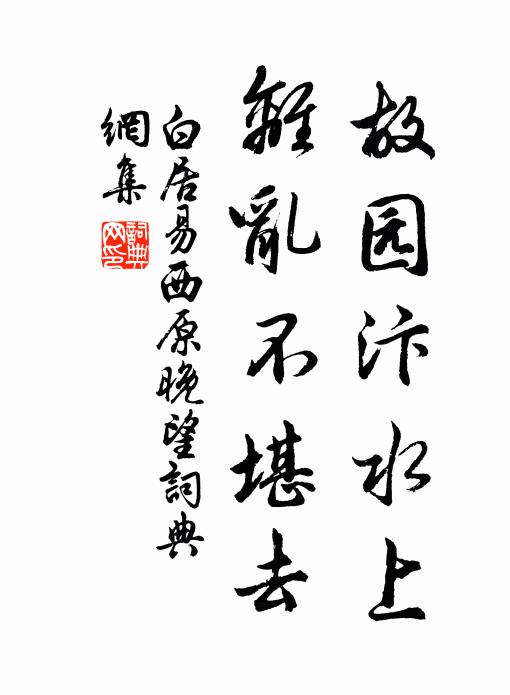 故园汴水上
離亂不堪去
白居易西原晚望詞典
網集
詞典
网印